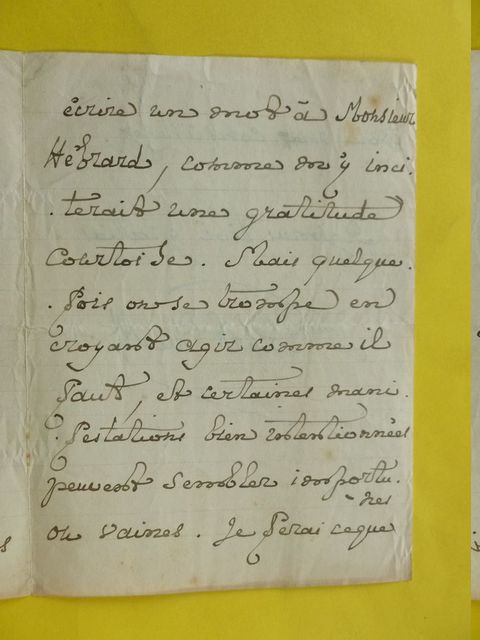 écrire un mot à Monsieur
Hébrard, comme m'y inci.
. terait une gratitude
courtoise. Mais quelque.
. fois on se trompe en
croyant agir comme il
faut, et certaines mani.
. festations bien intentionnées
peuvent sembler importu.
- nes
ou vaines. Je ferai ce que